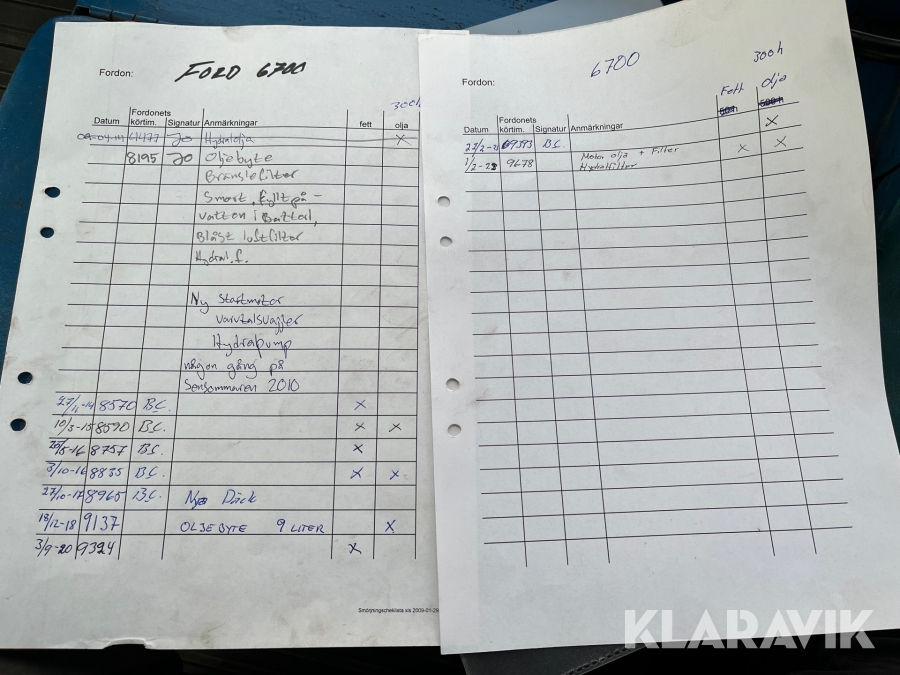 Fordon: FORD 6700
300h
Datum Fordonets körtim. Signatur Anmärkningar fett olja
Jo Hydralolja x
8195 Jo Oljebyte
Bränslefilter
Smort, fyllt på -
vatten i Batteri,
Blåst luftfilter
Hydral.f.
Ny startmotor
varvtalsvajjer
Hydrapump
någon gång på
Sensommaren 2010
27/11-14 8570 B.C. x
10/3-15 8590 B.C. x x
8757 B.C. x
3/10-16 8835 B.C. x x
27/10-17 8965 B.C. Nya Däck
18/12-18 9137 OLJEBYTE 9 LITER x
3/9-20 9324 x
Smörjningscheklista.xls 2009-01-29
Fordon: 6700
300h
Fett olja
50 h 500 h
Datum Fordonets körtim. Signatur Anmärkningar
9393 B.C. x
9678 Motor olja + Filter x x
Hydralfilter
KLARAVIK